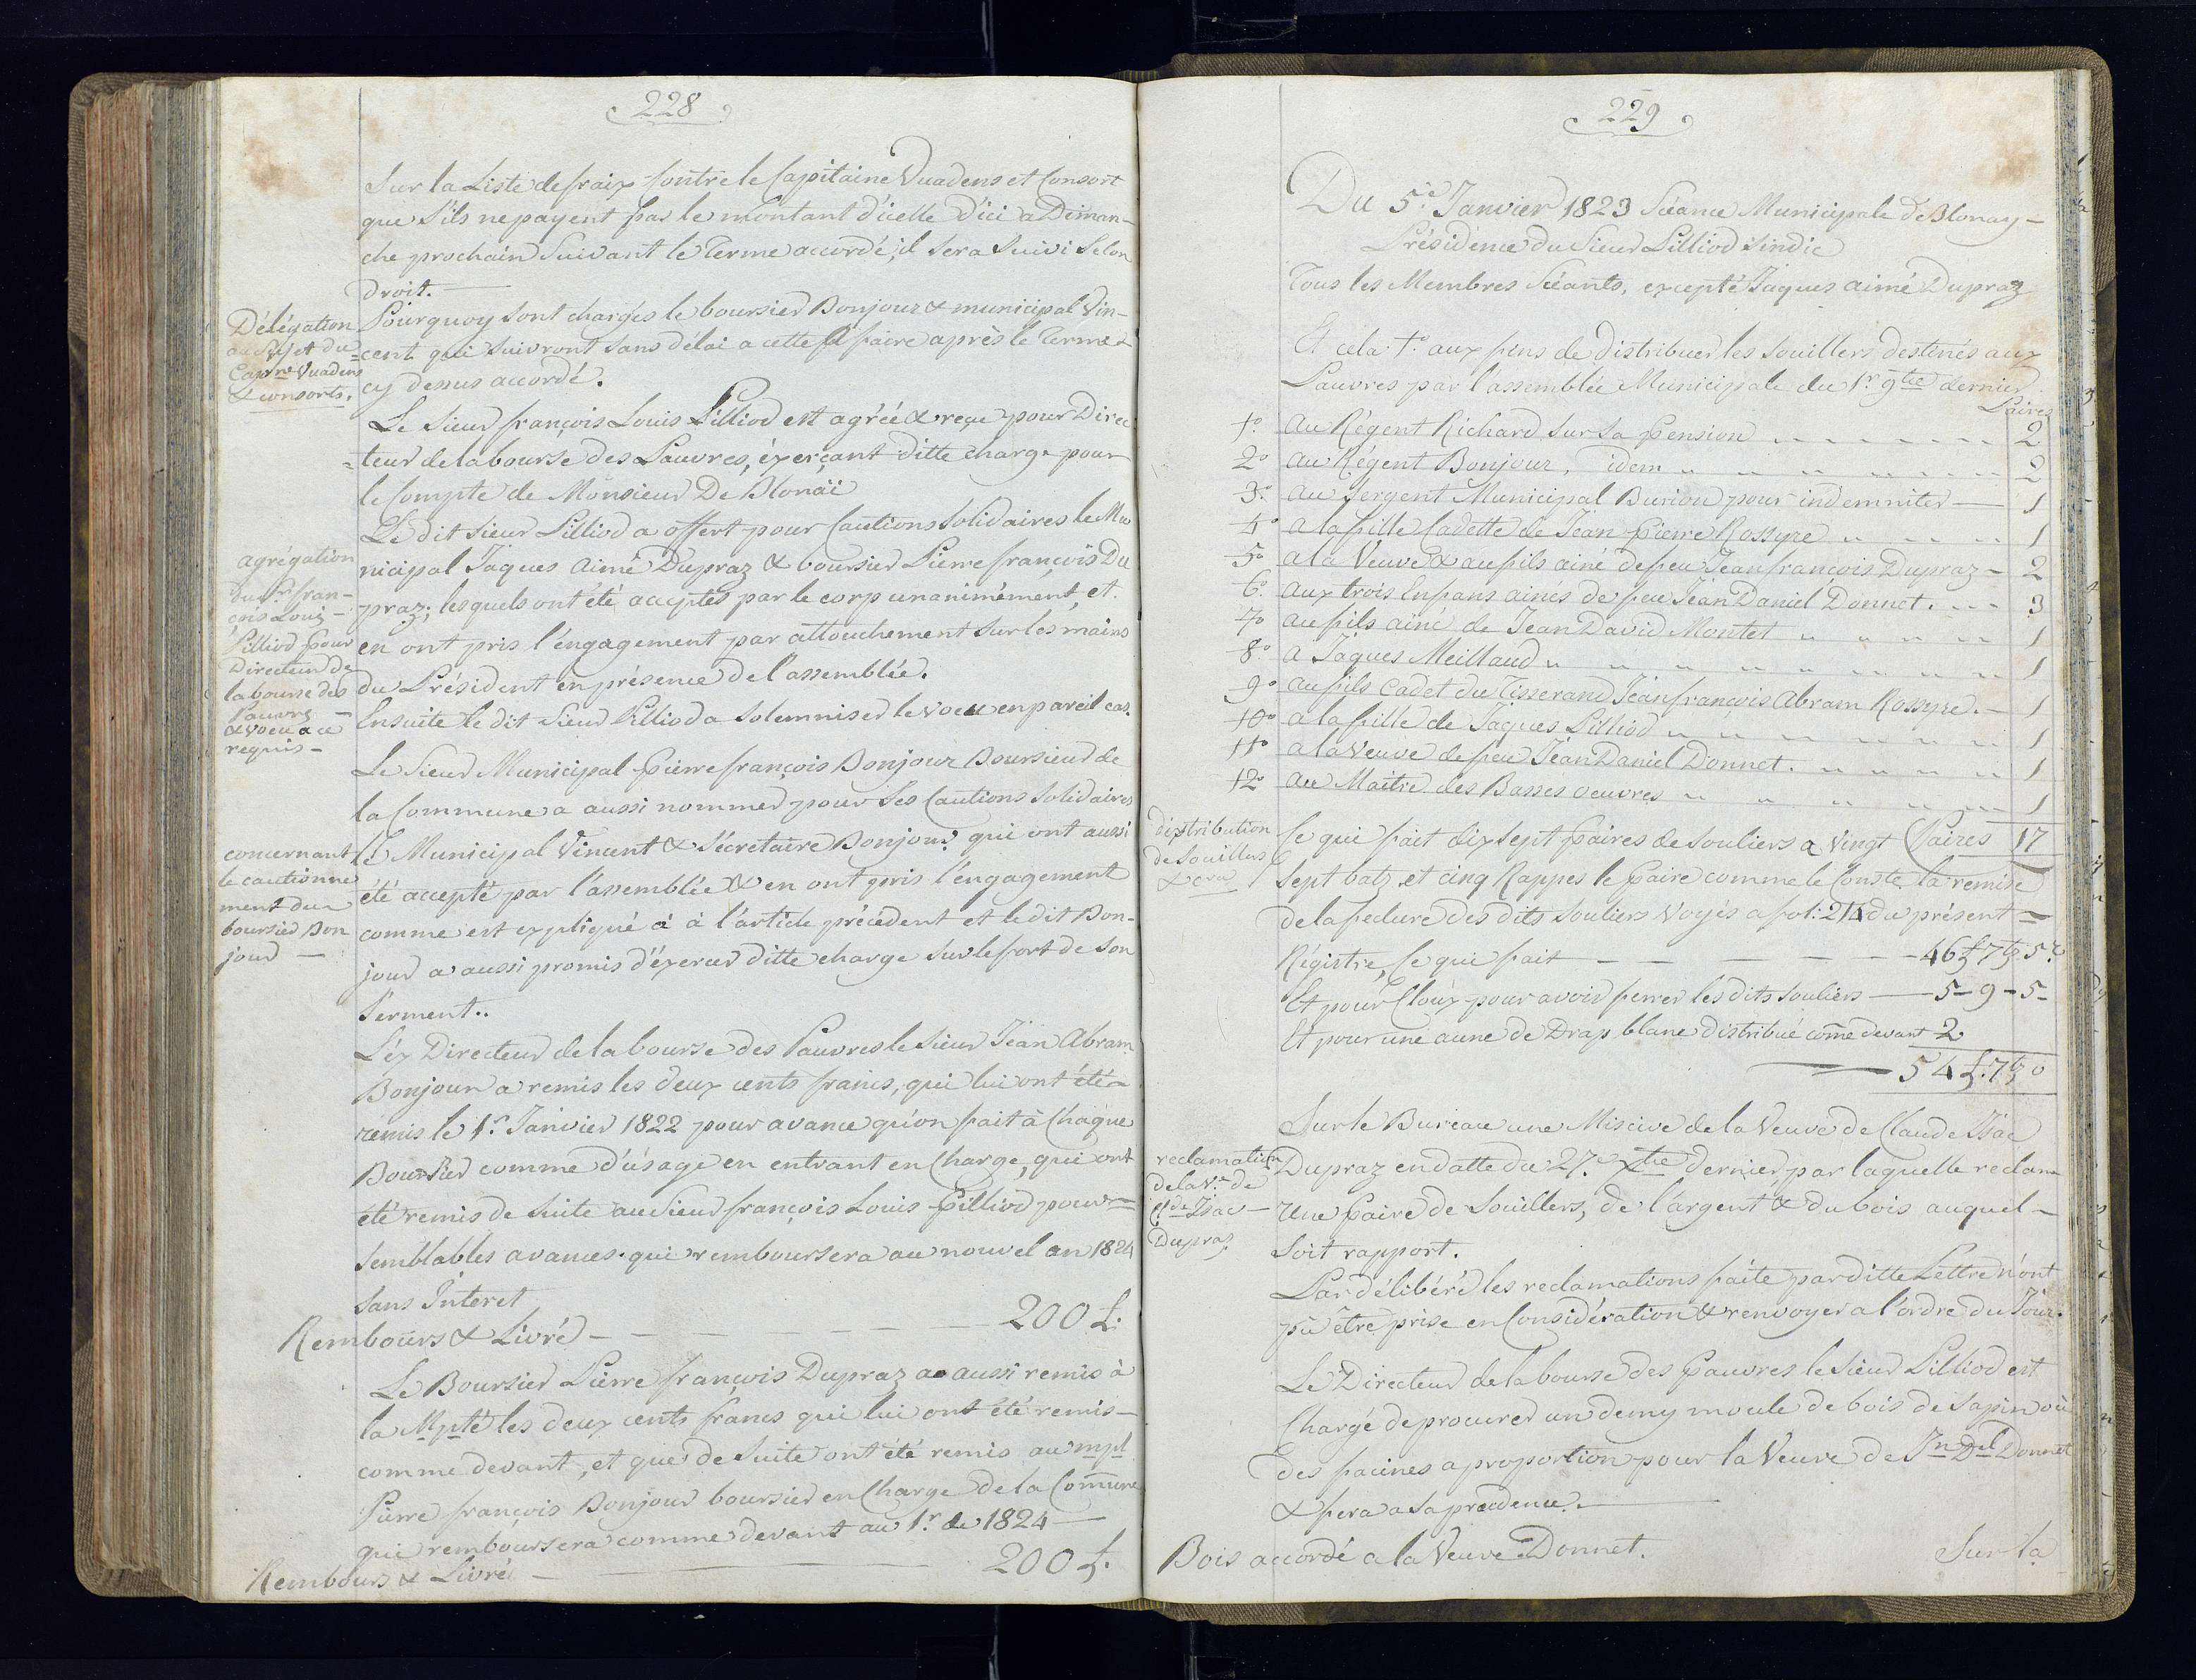 228
Sur la Liste de fraix contre le Capitaine Vuadens et Consort
que s'ils ne payent pas le montant d'icelle d'ici a Diman-
che prochain Suivant le Terme accordé, il sera Suivi Selon
droit.
Délégation
au sujet du
Capne Vuadens
& consorts.
Pourquoy sont chargés le boursier Bonjour & municipal Vin-
=cent qui suivront sans délai a cette affaire après le Terme
cy dessus accordé.
Le Sieur françois Louis Pilliod est agréé & reçu pour Direc
=teur de la bourse des Pauvres, éxerçant ditte charge pour
le Compte de Monsieur De Blonäi
agrégation
du Sr fran-
çois Louis
Pilliod pour
Directeur de
la bourse des
Pauvres
& voeu a ce
requis -
Le dit Sieur Pilliod a offert pour Cautions Solidaires le Mu
nicipal Jaques Aimé Dupraz & boursier Pierre françois Du
praz; lesquels ont été acceptés par le corp unanimément, et
en ont pris l'engagement par attouchement sur les mains
du Président en présence de l'assemblée.
Ensuite le dit Sieur Pilliod a Solemniser le voeu en pareil cas.
Le Sieur Municipal Pierre françois Bonjour Boursieur de
la Commune a aussi nommer pour Ses Cautions Solidaires
concernant
le cautionne
ment du
boursier Bon
jour -
le Municipal Vincent & Sécretaire Bonjour qui ont aussi
été accepté par l'assemblée & en ont pris l'engagement
comme est expliqué à à l'article précédent et le dit Bon-
jour a aussi promis d'éxercer ditte charge Sur le fort de Son
Serment..
L'éx Directeur de la bourse des Pauvres le Sieur Jean Abram
Bonjour a remis les deux cents francs, qui lui ont été
remis le 1.r Janvier 1822 pour avance qu'on fait à Chaque
Boursier comme d'usage en entrant en Charge, qui ont
été remis de suite au Sieur françois Louis Pilliod pour
semblables avances qui remboursera au nouvel an 1824
sans Interet
Rembours & Livré - 200 L.
Le Boursier Pierre françois Dupraz a aussi remis à
la Mpté les deux cents francs qui lui ont été remis -
comme devant, et que de suite ont été remis au mpl
Pierre françois Bonjour boursier en Charge de la Commune
qui remboursera comme devant au 1.r de 1824 -
Rembours & Livré - 200 L.
229
Du 5.e Janvier 1823 Séance Municipale de Blonay -
Présidence du Sieur Pilliod Sindic
Tous les Membres Séants, excepté Jaques aimé Dupraz
Et cela 1.o aux fins de distribuer les Souillers destinés aux
Pauvres par l'assemblée Municipale du 1.r 9bre dernier
Paires
1.o Au Régent Richard Sur Sa Pension 2
2.o Au Régent Bonjour, idem 2
3.o Au Sergent Municipal Burion pour indemniter 1
4.o a la fille Cadette de Jean Pierre Rossyre 1
5.o a la Veuve & au fils ainé de feu Jean françois Dupraz - 2
6.o Aux trois Enfans ainés de feu Jean Daniel Donnet. 3
7.o au fils ainé de Jean David Montet 1
8.o a Jaques Meillaud 1
9.o au fils Cadet du Tisserand Jean françois Abram Rossyre. 1
10.o a la fille de Jaques Pilliod 1
11.o a la Veuve de feu Jean Daniel Donnet. 1
12.o au Maître des Basses oeuvres 1
distribution
de Souillers
Ce qui fait dix sept Paires de Souliers a Vingt Paires 17
Sept batz et cinq Rappes le Paire comme le Conste la remise
de la fecture des dits Souliers Voyés a fol: 214 du présent =
Régistre, Ce qui fait - 46 L 7 bz 5 r
Et pour Cloux pour avoir ferrer les dits Souliers - 5 - 9 - 5 -
Et pour une aune de Drap blanc distribué come devant 2
54 L. 7 bz 0
reclamation
de la Ve de
Cde Isac
Dupraz
Sur le Bureau une Miscive de la Veuve de Claude Isac
Dupraz en datte du 27.e Xbre dernier, par laquelle reclame
une Paire de Souillers, de l'argent & du bois auquel -
Soit rapport.
Par délibéré les reclamations faite par ditte Lettre n'ont
pû être prise en Considération & renvoyer a l'ordre du Jour.
Le Directeur de la bourse des Pauvres le Sieur Pilliod est
Chargé de procurer un demy moule de bois de Sapin où
des facines a proportion pour la Veuve de Jn Dl Donnet
& fera a Sa prudence.
Bois accordé a la Veuve Donnet.
Sur la